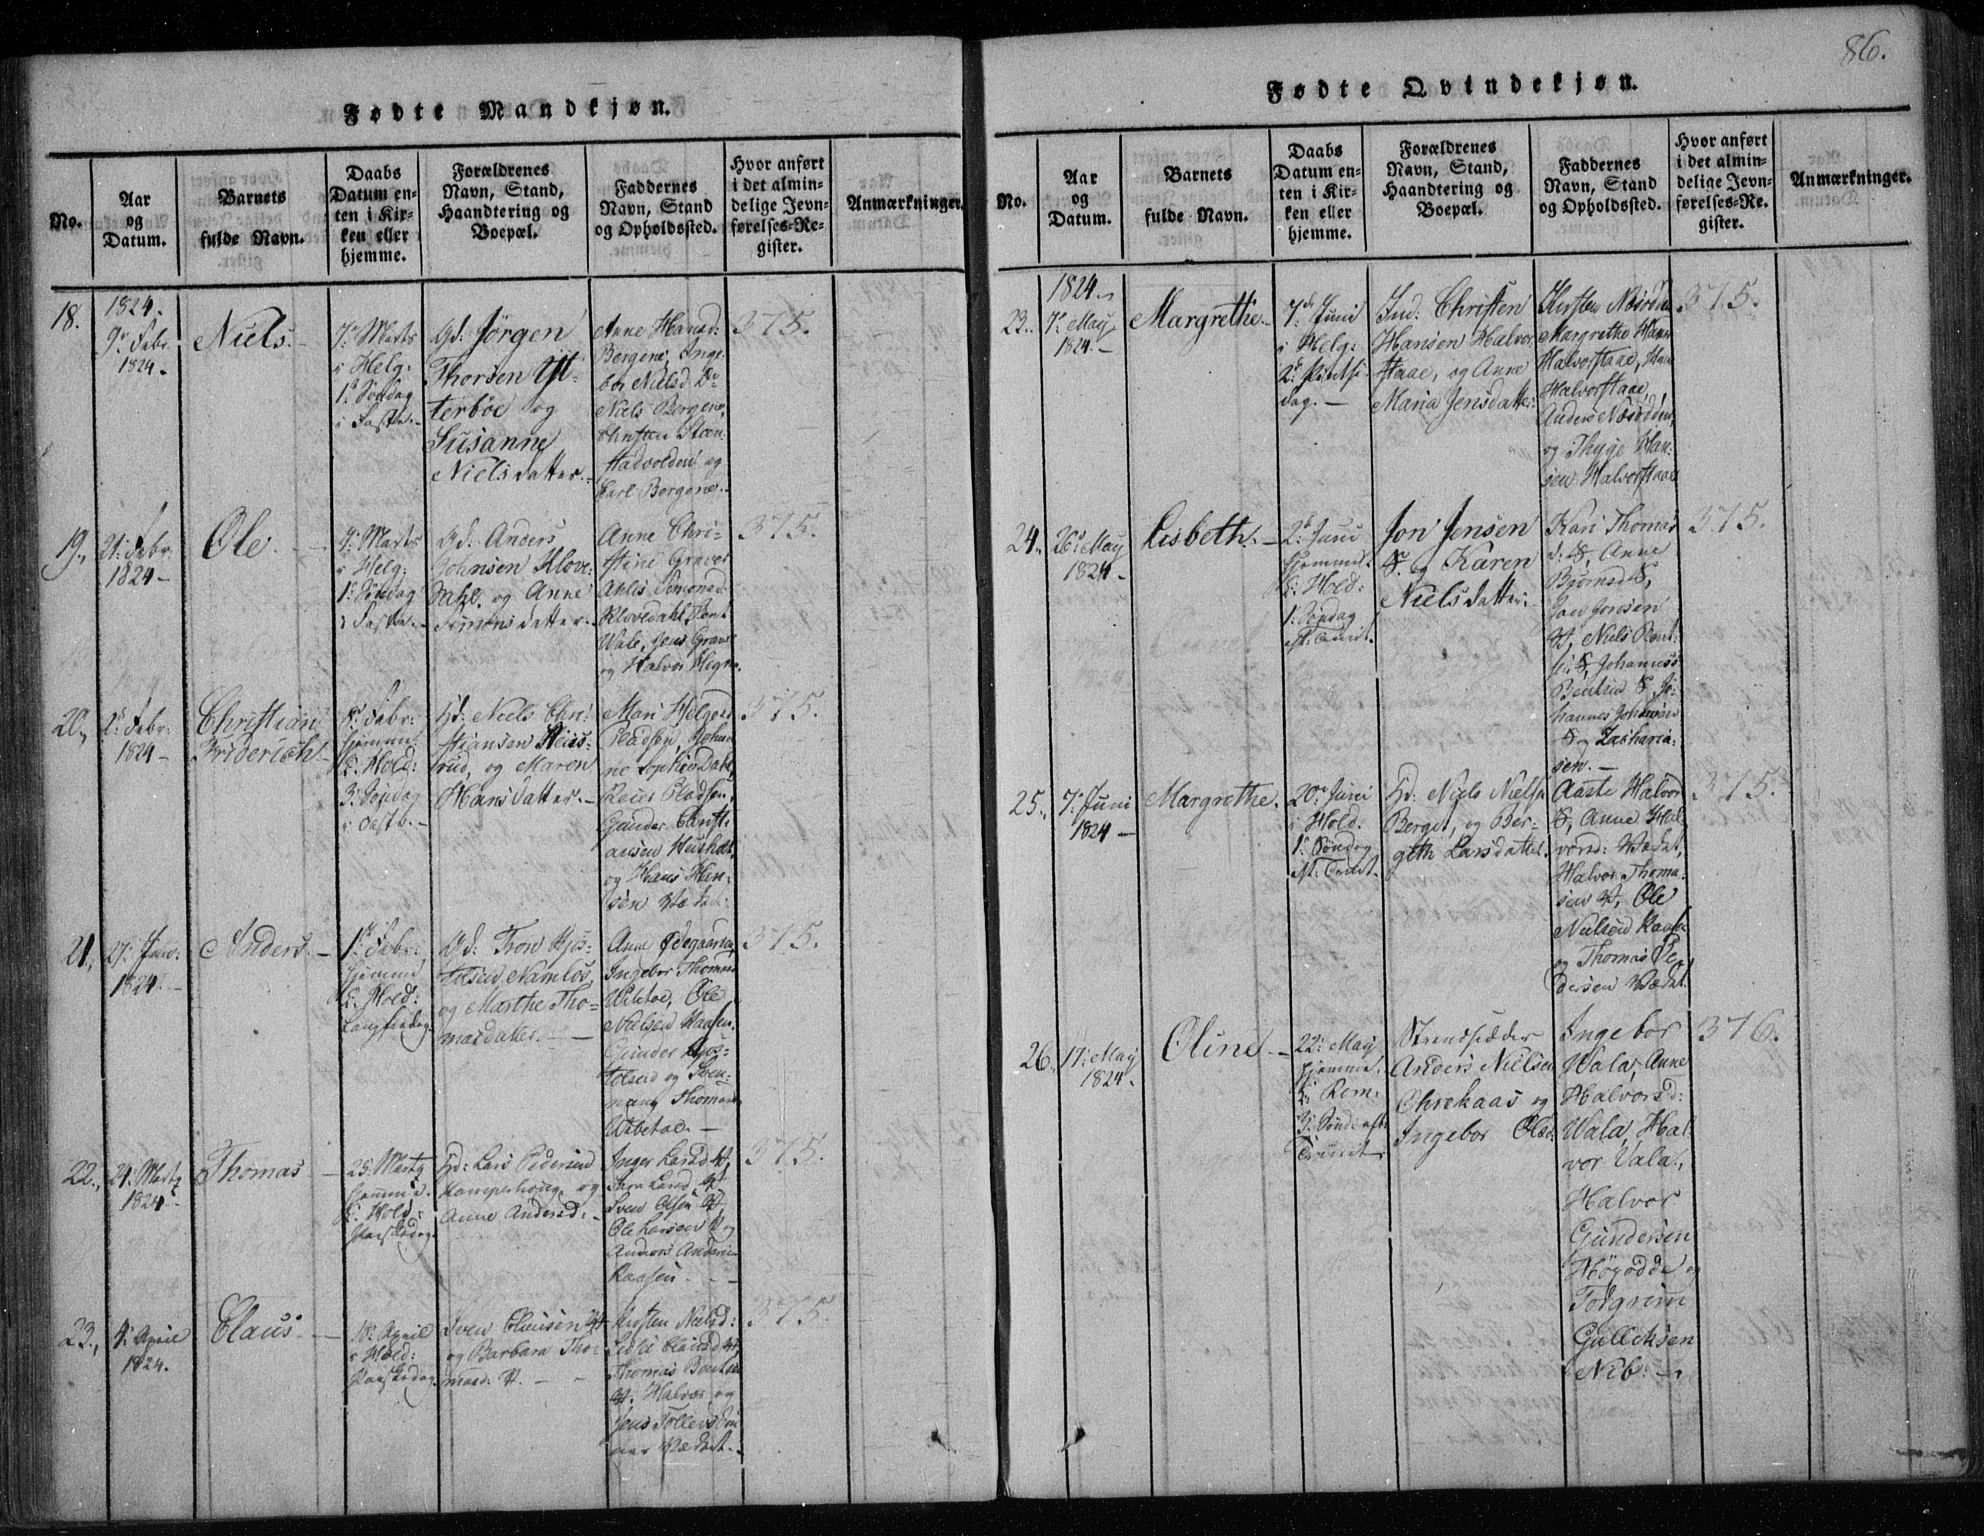 86.
Fødte Mandkjøn.
No.
Aar
og
Datum.
Barnets
fulde Navn.
Daabs
Datum en-
ten i Kir-
ken eller
hjemme.
Forældrenes
Navn, Stand,
Haandtering og
Boepæl.
Faddernes
Navn, Stand
og Opholdssted.
Hvor anført
i det almin-
delige Jevn-
førelses-Re-
gister.
Anmærkninger.
18.
1824.
9de Febr.
1824.
Niels.
7de Marts
i Helg:
1ste Søndag
i Faste.
Gd: Jørgen
Thorsen
terböe og
Susanne
Nielsdatter.
Anne Hansd:
Bergene, Inge-
bor Nielsd. Do
Niels Bergene,
Christen Steen-
stadvolden og
Carl Bergene.
375.
19.
21: Febr.
1824
Ole.
7: Marts
i Helg:
1: Søndag
i Faste.
Gd: Anders
Johnsen Klove-
dahl. og Anne
Simonsdatter.
Anne Chri-
stine Graver
Simonsd:
Klovedahl, Bent
Wale, Jens Graver
og Halvor Hegna.
375.
20.
2: Febr.
1824
Christian
Friderich
8de Febr:
hjemme
K: Hold:
3: Søndag
i Faste.
Hd: Niels Chri-
stiansen
rud, og Maren
Hansdatter.
Mari Helgesd
Pladsen,
ne Sophie Dahl,
Pladsen,
Gunder Christi-
ansen
og Hans Han-
sen
375.
21.
27: Janv:
1824.
Anders.
1ste Febr.
hjemme
K: Hold:
Langfredag.
Gd: Tron Kjos-
tolsen Namlos,
og Marthe Tho-
masdatter.
Anne Ødegaarden,
Ingebor Thomasd
Ole
Nielsen Haasen.
Gunder Kjos-
tolsen og Sven-
nung Thomasen
375.
22.
21: Martz
1824
Thomas
25: Martz
hjemme.
K: Hold:
Paaskedag.
Hd: Lars Pedersen
Kamperhoug og
Anne Andersd.
Inger Larsd
Larsd
Sven Olsen
Ole Larsen og
Anders Andersen
Raasen.
375.
23.
4: April
1824.
Claus.
18: April
i Hold:
Paaskedag.
Sven Clausen
og Barbara Tho-
masd:
Kirsten Nielsd:
Clausd
Thomas Bentsen
Halvor og
Jens Tollevsen
375.
Fødte Qvindekjøn.
No.
Aar
og
Datum.
Barnets
fulde Navn.
Daabs
Datum en-
ten i Kir-
ken eller
hjemme.
Forældrenes
Navn, Stand,
Haandtering og
Boepæl.
Faddernes
Navn, Stand
og Opholdssted.
Hvor anført
i det almin-
delige Jevn-
førelses-Re-
gister.
Anmærkninger.
23.
1824.
7: May
1824.
Margrethe.
7de Juni
i Helg:
2: Pintse
dag.
Ind: Christen
Hansen Halvor-
staae, og Anne
Maria Jensdatter:
Kirsten Næsodden
Margrethe
Halvorstaae,
Halvorstaae,
Anders Næsodden,
og Thyge Han-
sen Halvorstaae
375.
24.
26: May
1824
Lisbeth.
2de Juni
hjemme.
K: Hold:
1: Søndag
eft: Trinit.
Jon Jensen
og Karen
Nielsdatter.
Kari Thomas
d: Anne
Bjørnsd
Jensen
Niels Bent-
Johannes
Bentsen Jo-
hannes Johansen
og Zacharia-
sen.
375.
25.
7: Juni
1824
Margrethe.
20de Juni
i Hold.
1: Søndag
eft: Trinit.
Hd: Niels Nielsen
Berget, og Ber-
gith Larsdatter.
Aaste Halvorsd
Anne Hal-
vorsd:
Halvor Thoma-
sen Ole
Nielsen
og Thomas Pe-
dersen
375.
26.
17: May
1824.
Oline
22: May
hjemme.
K: Rom:
3: Sønd: eft:
Trinit.
Strandsidder
Anders Nielsen
Ohrekaas og
Ingebor Olsd.
Ingebor
Wala, Anne
Halvorsd:
Wala, Hal-
vor Vala,
Halvor
Gundersen
Høyodde og
Torgrim
Gullichsen
Nib:
376.